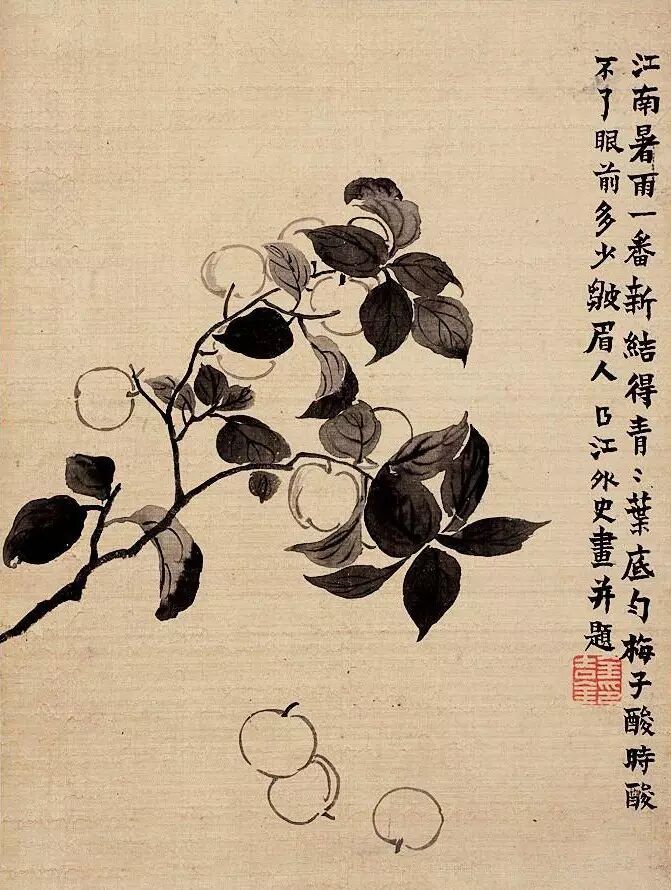 江南暑雨一番新結得青〻葉底勻梅子酸時酸
不了眼前多少皺眉人 曲江外史畫并題
金吉金印